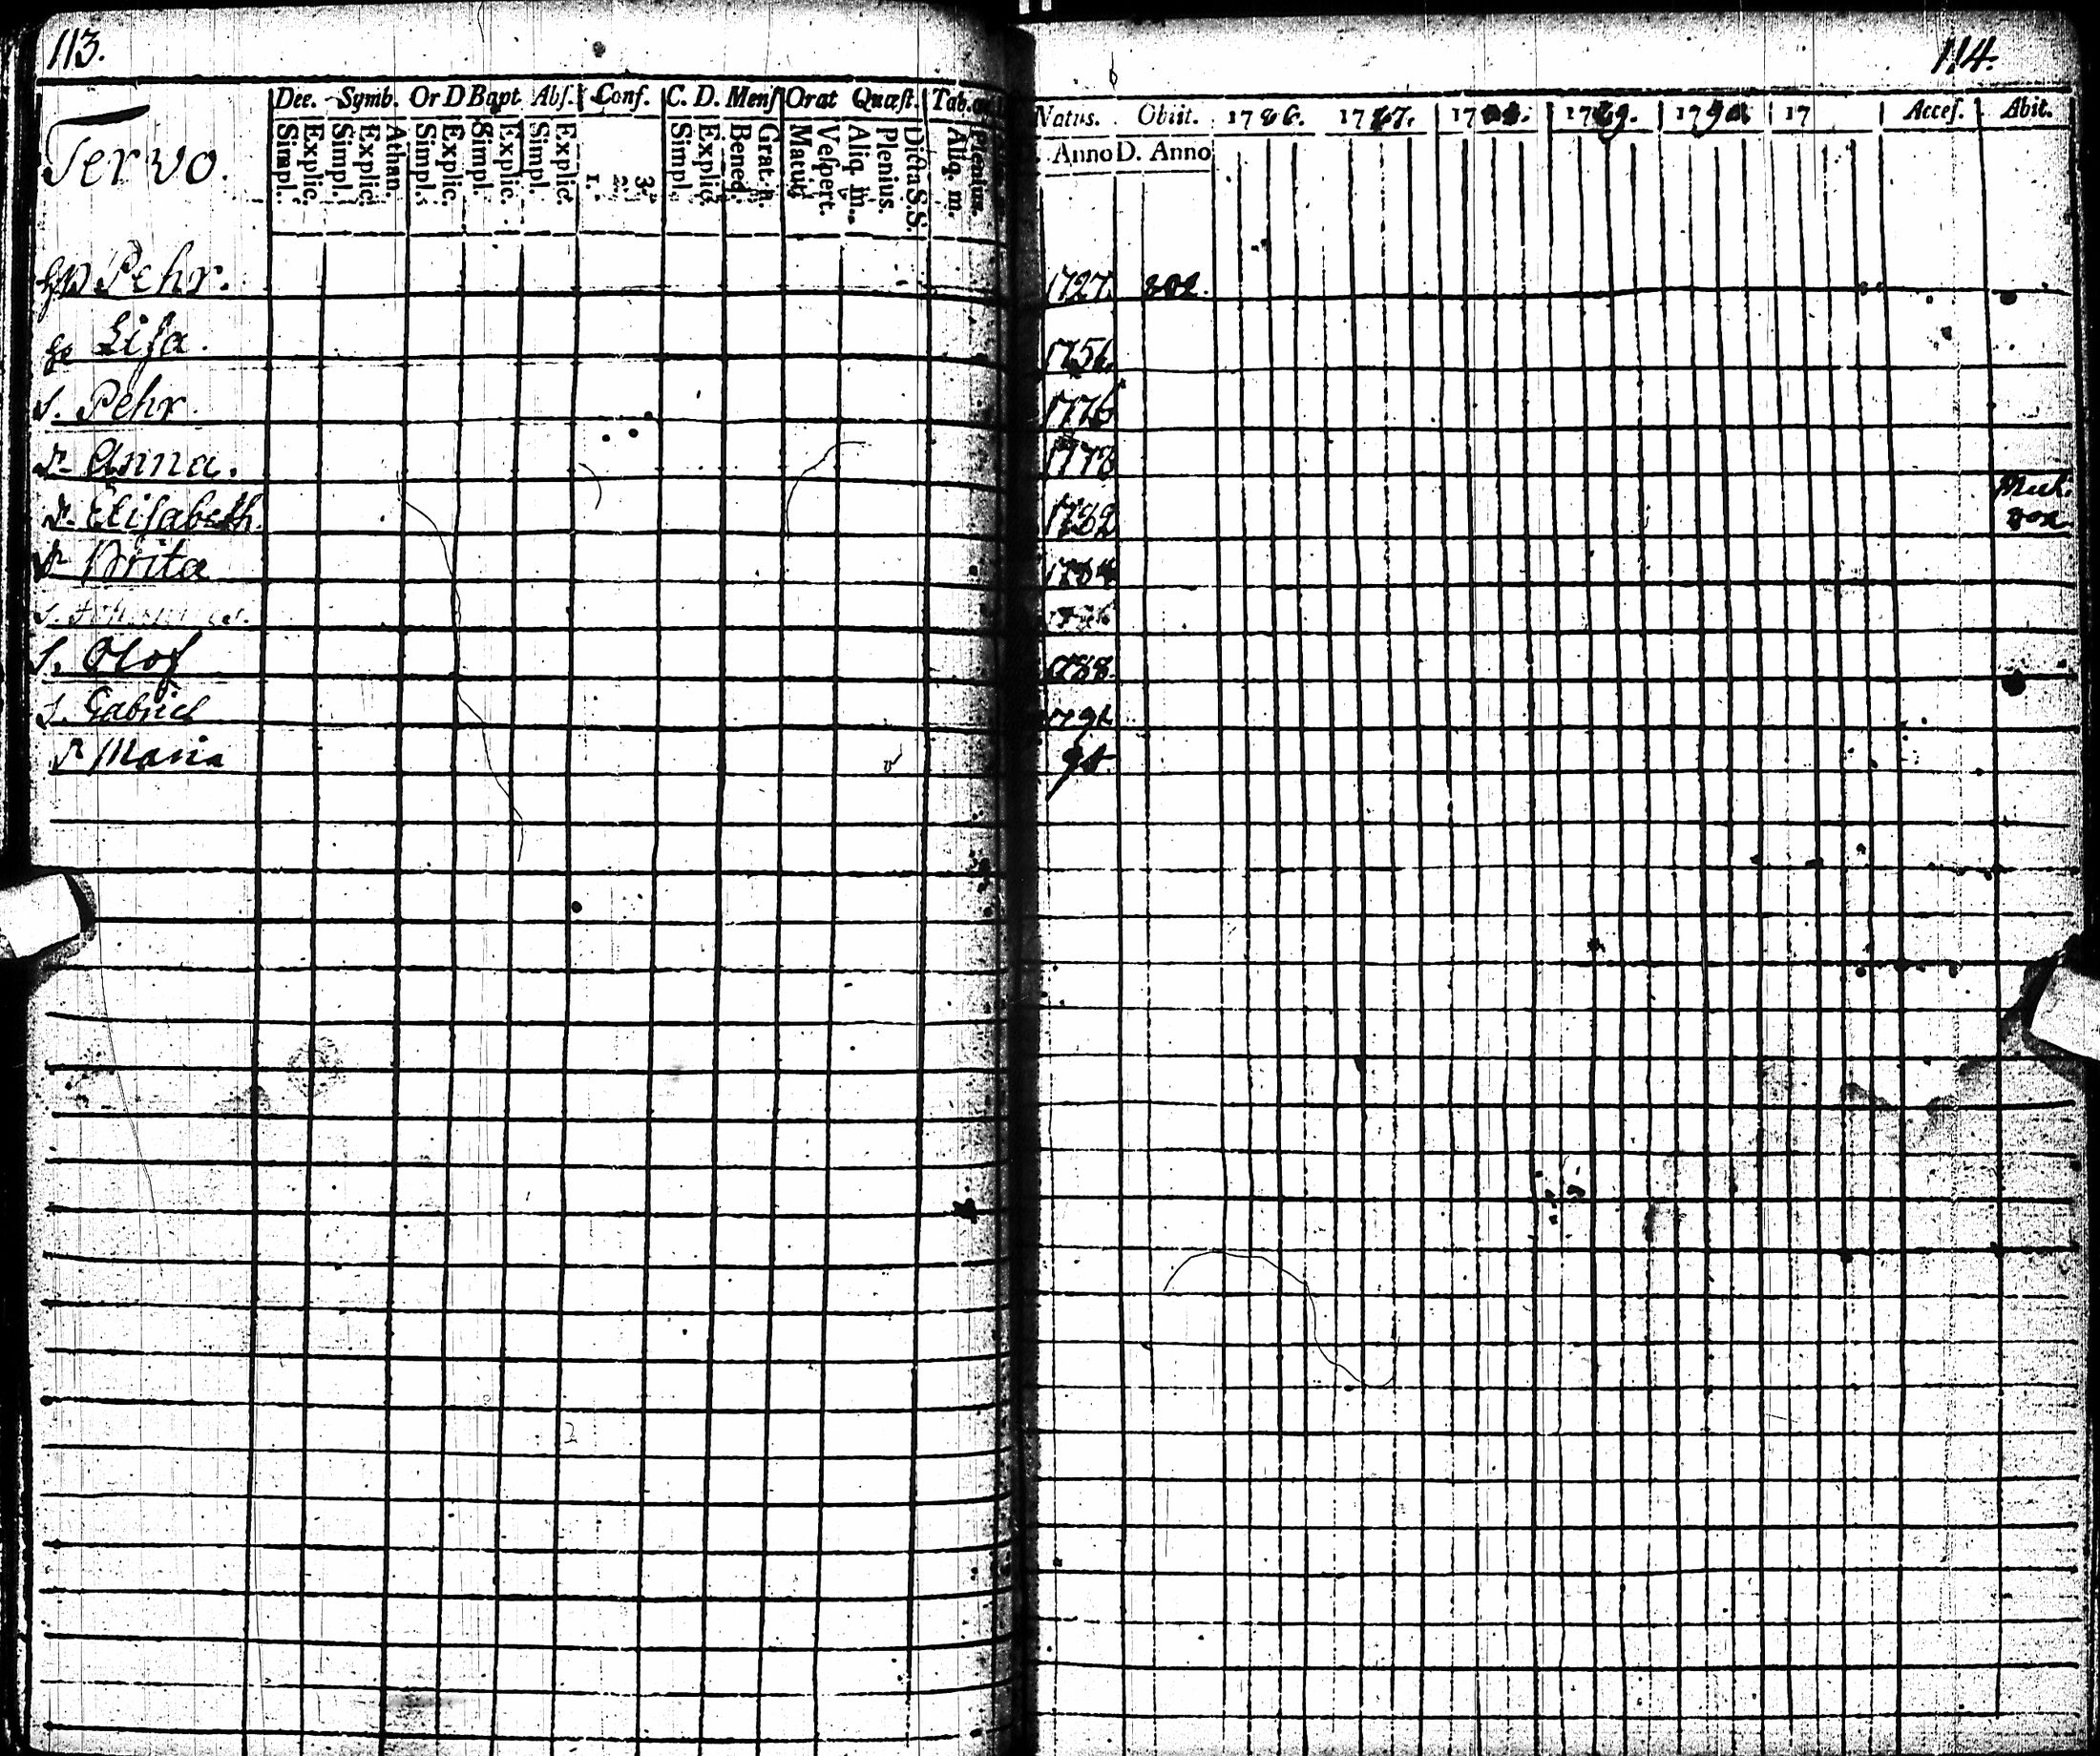 113.
Dec. Symb. Or D Bapt Abs. Conf. C. D. Mens Orat Quæst. Tab.
Simpl. Explic. Simpl. Explic. Athan. Simpl. Explic. Simpl. Explic. Simpl. Explic. 1. 2. 3. Simpl. Explic. Bened. Grat. a. Matut. Vespert. Aliq. m. Plenius. Dicta S.S. Aliq. m. Plenius.
Tervo.
Pehr.
Lisa.
S. Pehr.
D. Anna.
D. Elisabeth.
D. Brita
S.
S. Olof
S. Gabriel
D Maria
114.
Natus. Obiit. 1786. 1787. 1788. 1789. 1790. 17 Acces. Abit.
Anno D. Anno
1727. 802.
1756.
1776
1778
1782
1784
1786
1788.
179